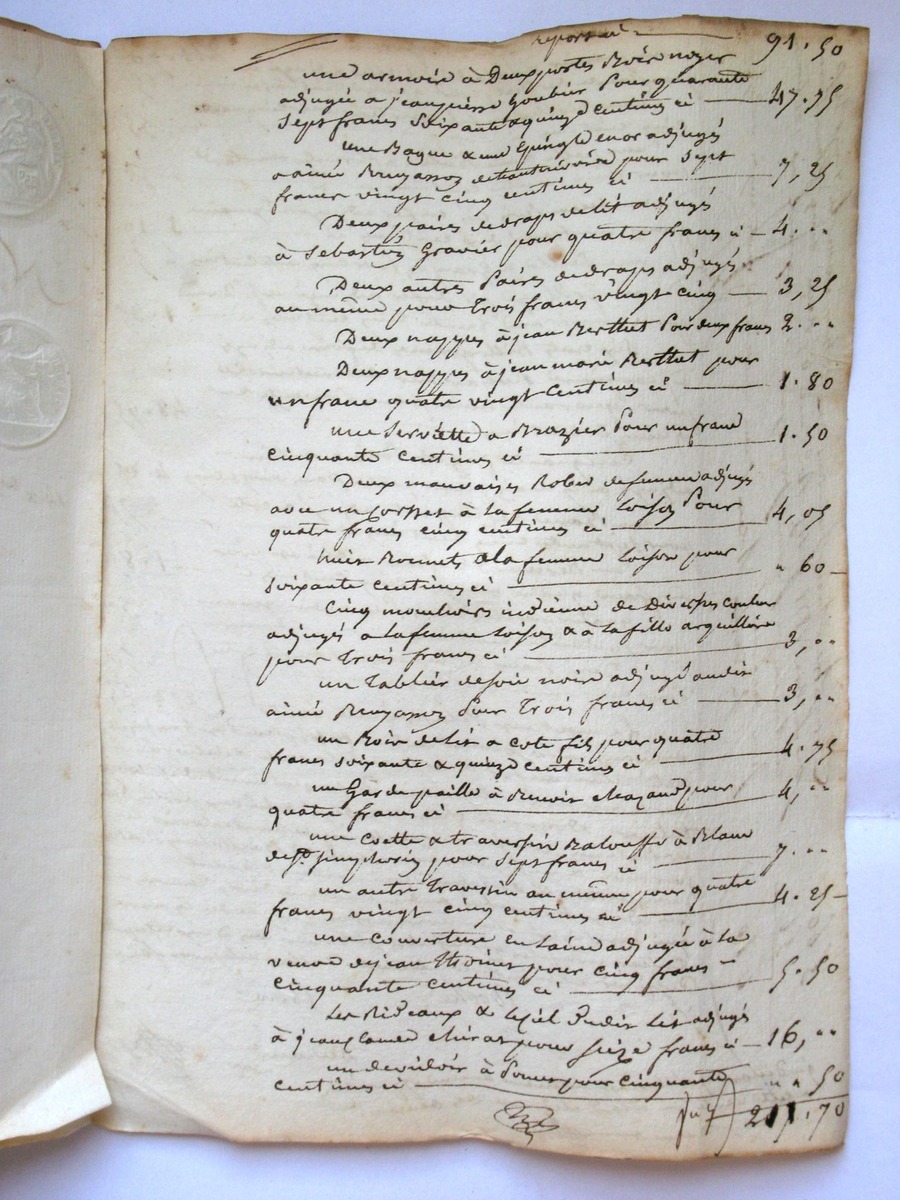 report ci 91.50
une armoire à Deux portes Bois noyer
adjugée a jean pierre Goubier Pour quarante
sept francs Soixante & quinze centimes ci 47.75
une Bague & une Epingle en or adjugés
a aimé pour sept
francs vingt cinq centimes ci 7,25
Deux paires de draps de lit adjugés
à Sebastien Gravier pour quatre francs ci 4. "
Deux autres Paires de draps adjugés
au même pour Trois francs vingt cinq 3,25
Deux nappes à jean Berthet Pour deux francs 2. "
Deux nappes à jean marie Berthet pour
un franc quatre vingt Centimes ci 1.80
une Serviette a Brazier Pour un franc
cinquante centimes ci 1.50
Deux mauvaises Robes de femme adjugés
avec un Corset à la femme Loison Pour
quatre francs cinq centimes ci 4,05
huit Bonnets a la femme Loison pour
soixante centimes ci " 60
Cinq mouchoirs indienne de Diverses couleur
adjugés a la femme Loison & à la fille arquillière
pour Trois francs ci 3, "
un Tablier de soie noire adjugé audit
aimé Pour Trois francs ci 3, "
un Bois de lit a cote fils pour quatre
francs soixante & quinze centimes ci 4.75
un Garde paille à Benoit pour
quatre francs ci 4, "
une Coette & traversin Balouffe à Blanc
de St. Simphorien pour Sept francs ci 7. "
un autre Traversin au même pour quatre
francs vingt cinq centimes ci 4.25
une Couverture en Laine adjugée à La
veuve de jean pour cinq francs
cinquante centimes ci 5.50
Les Rideaux & Le Ciel Dudit Lit adjugés
à jean Claude Chirat pour seize francs ci 16, "
un devidoir à pour cinquante
centimes ci " " 50
211.70